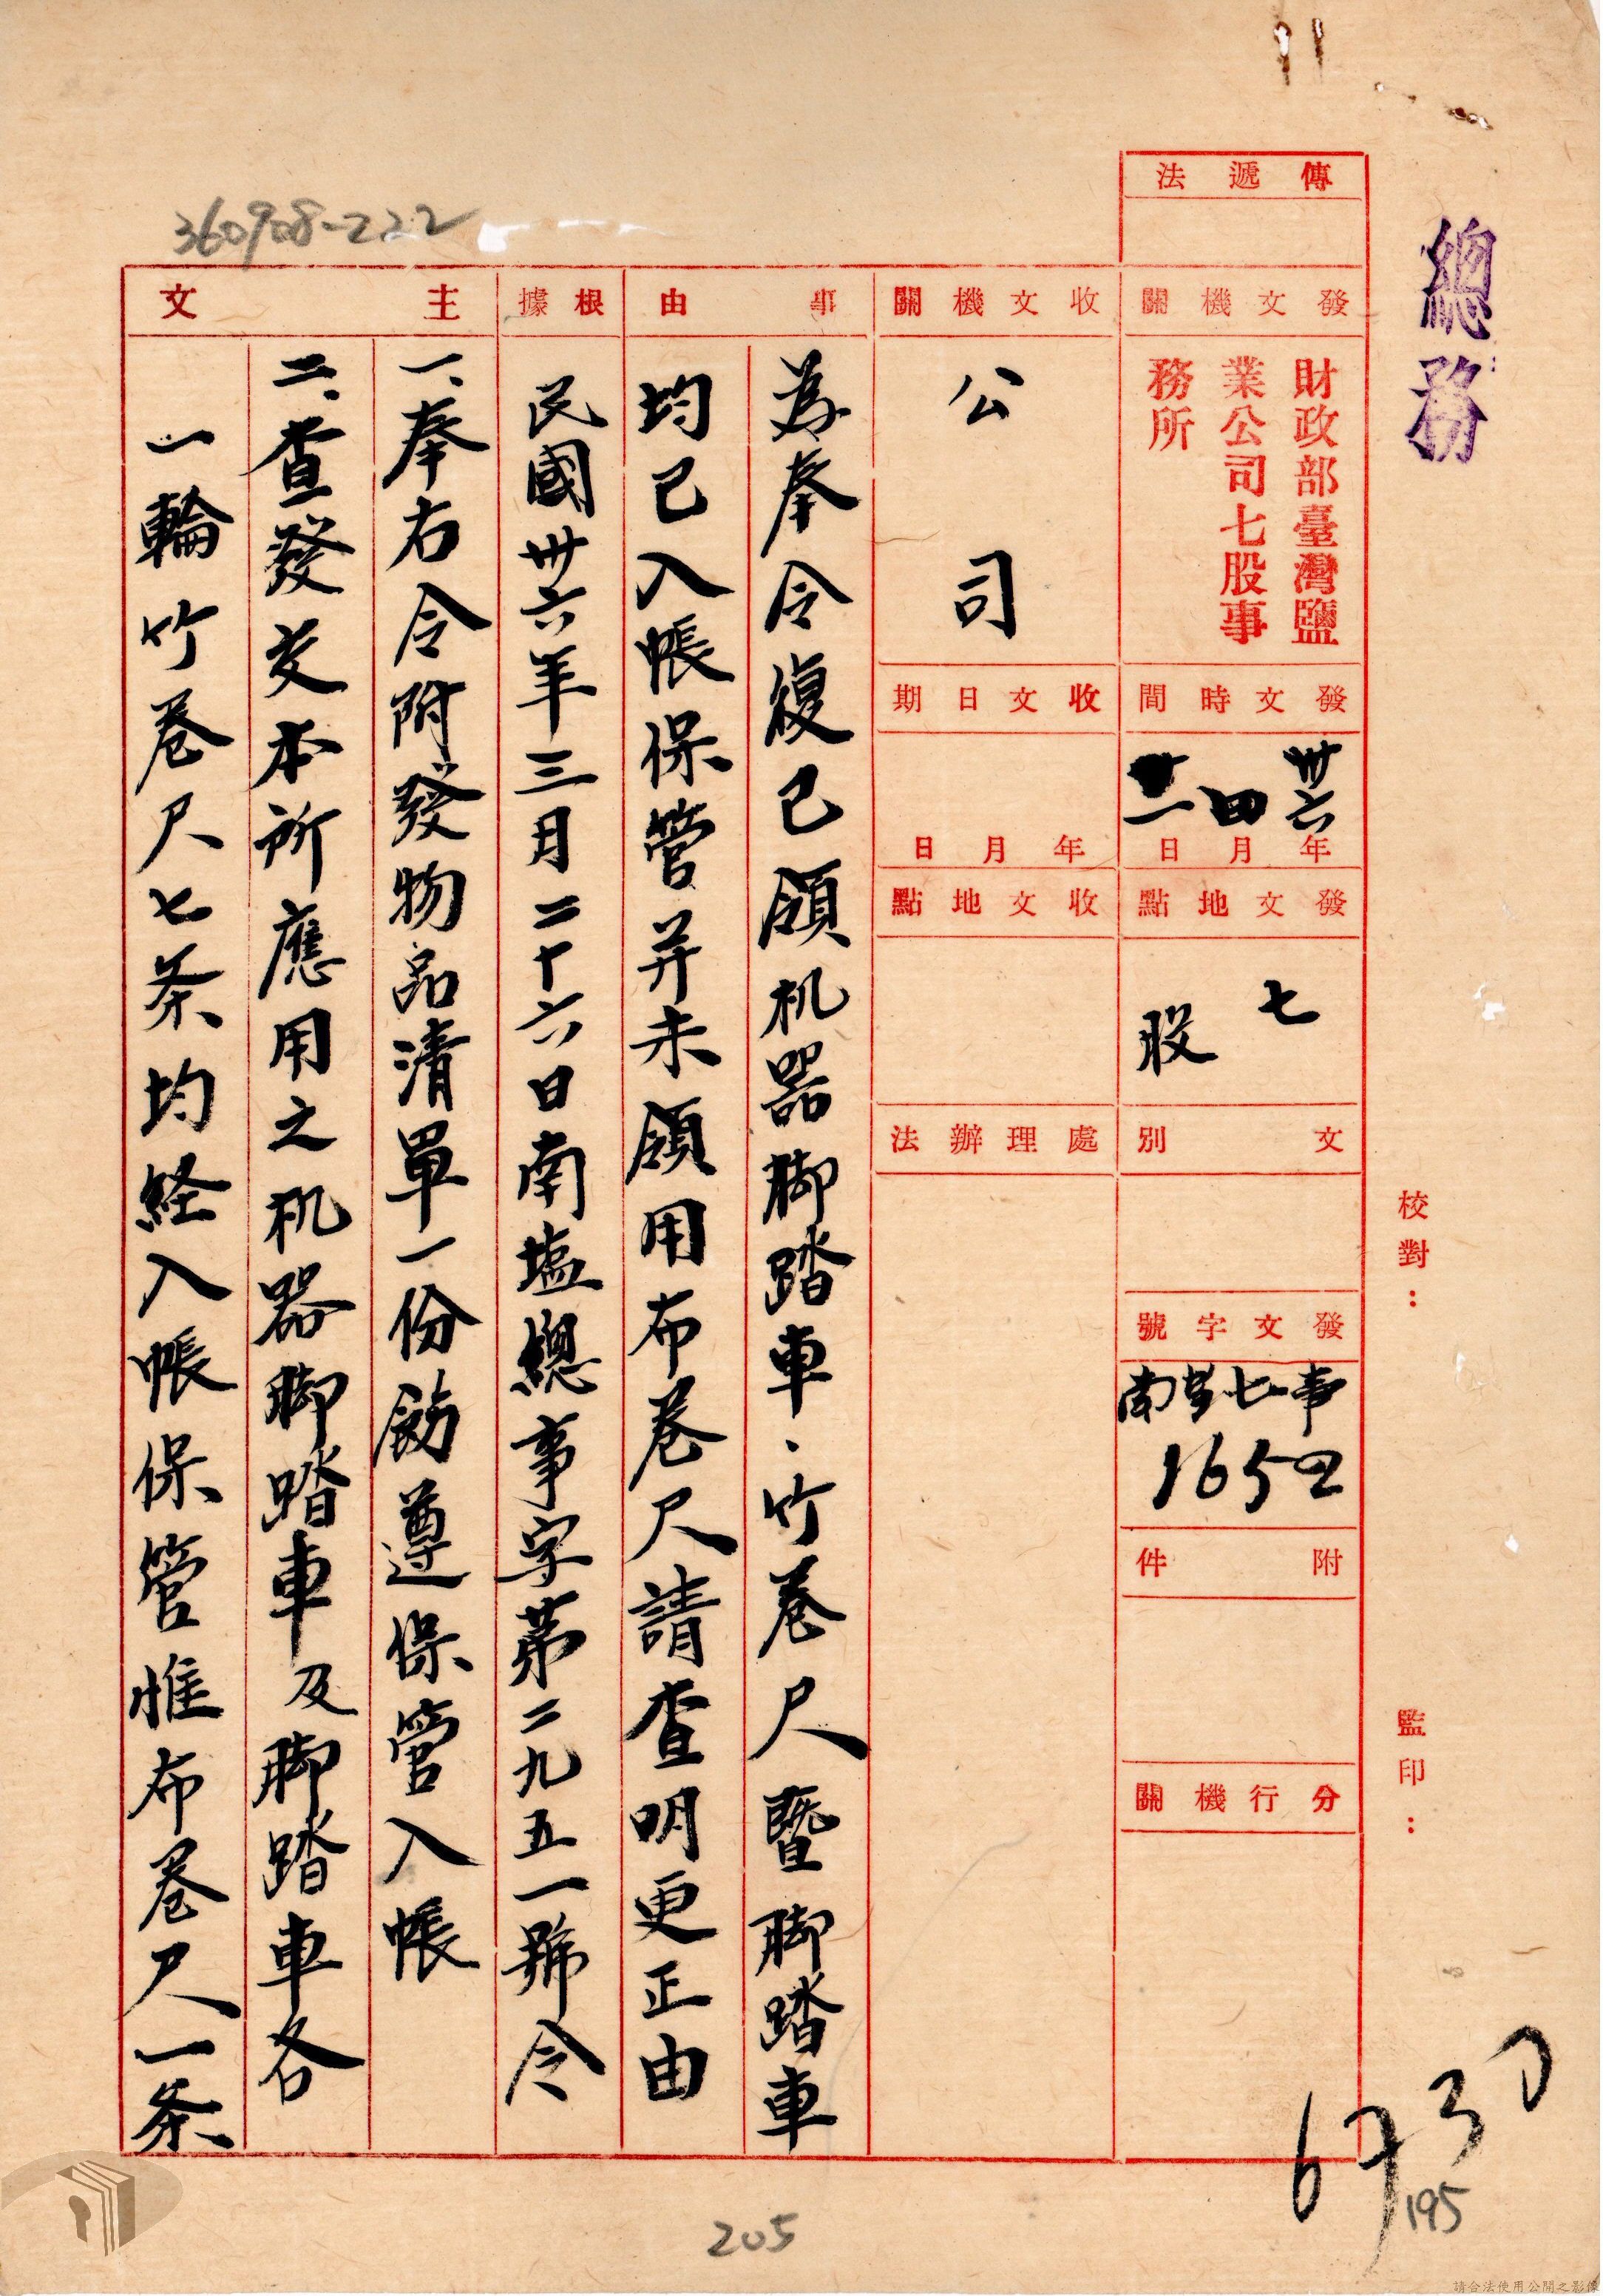 總務
校對：
監印：
傳遞法
發文機關
財政部臺灣鹽
業公司七股事
務所
發文時間
卅六年四月二日
發文地點
七
股
文別
發文字號
南営七事
1652
附件
分行機關
收文機關
公司
收文日期
年月日
收文地點
處理辦法
事由
為奉令復已領机器脚踏車、竹卷尺暨脚踏車
均已入帳保管并未領用布卷尺請查明更正由
根據
民國卅六年三月二十六日南塩總事字第二九五一號令
主文
一、奉右令附發物品清單一份飭遵保管入帳
二、查發交本所應用之机器脚踏車及脚踏車各
一輪竹卷尺七条均経入帳保管惟布卷尺一条
360908-222
6730
195
205
請合法使用公開之影像